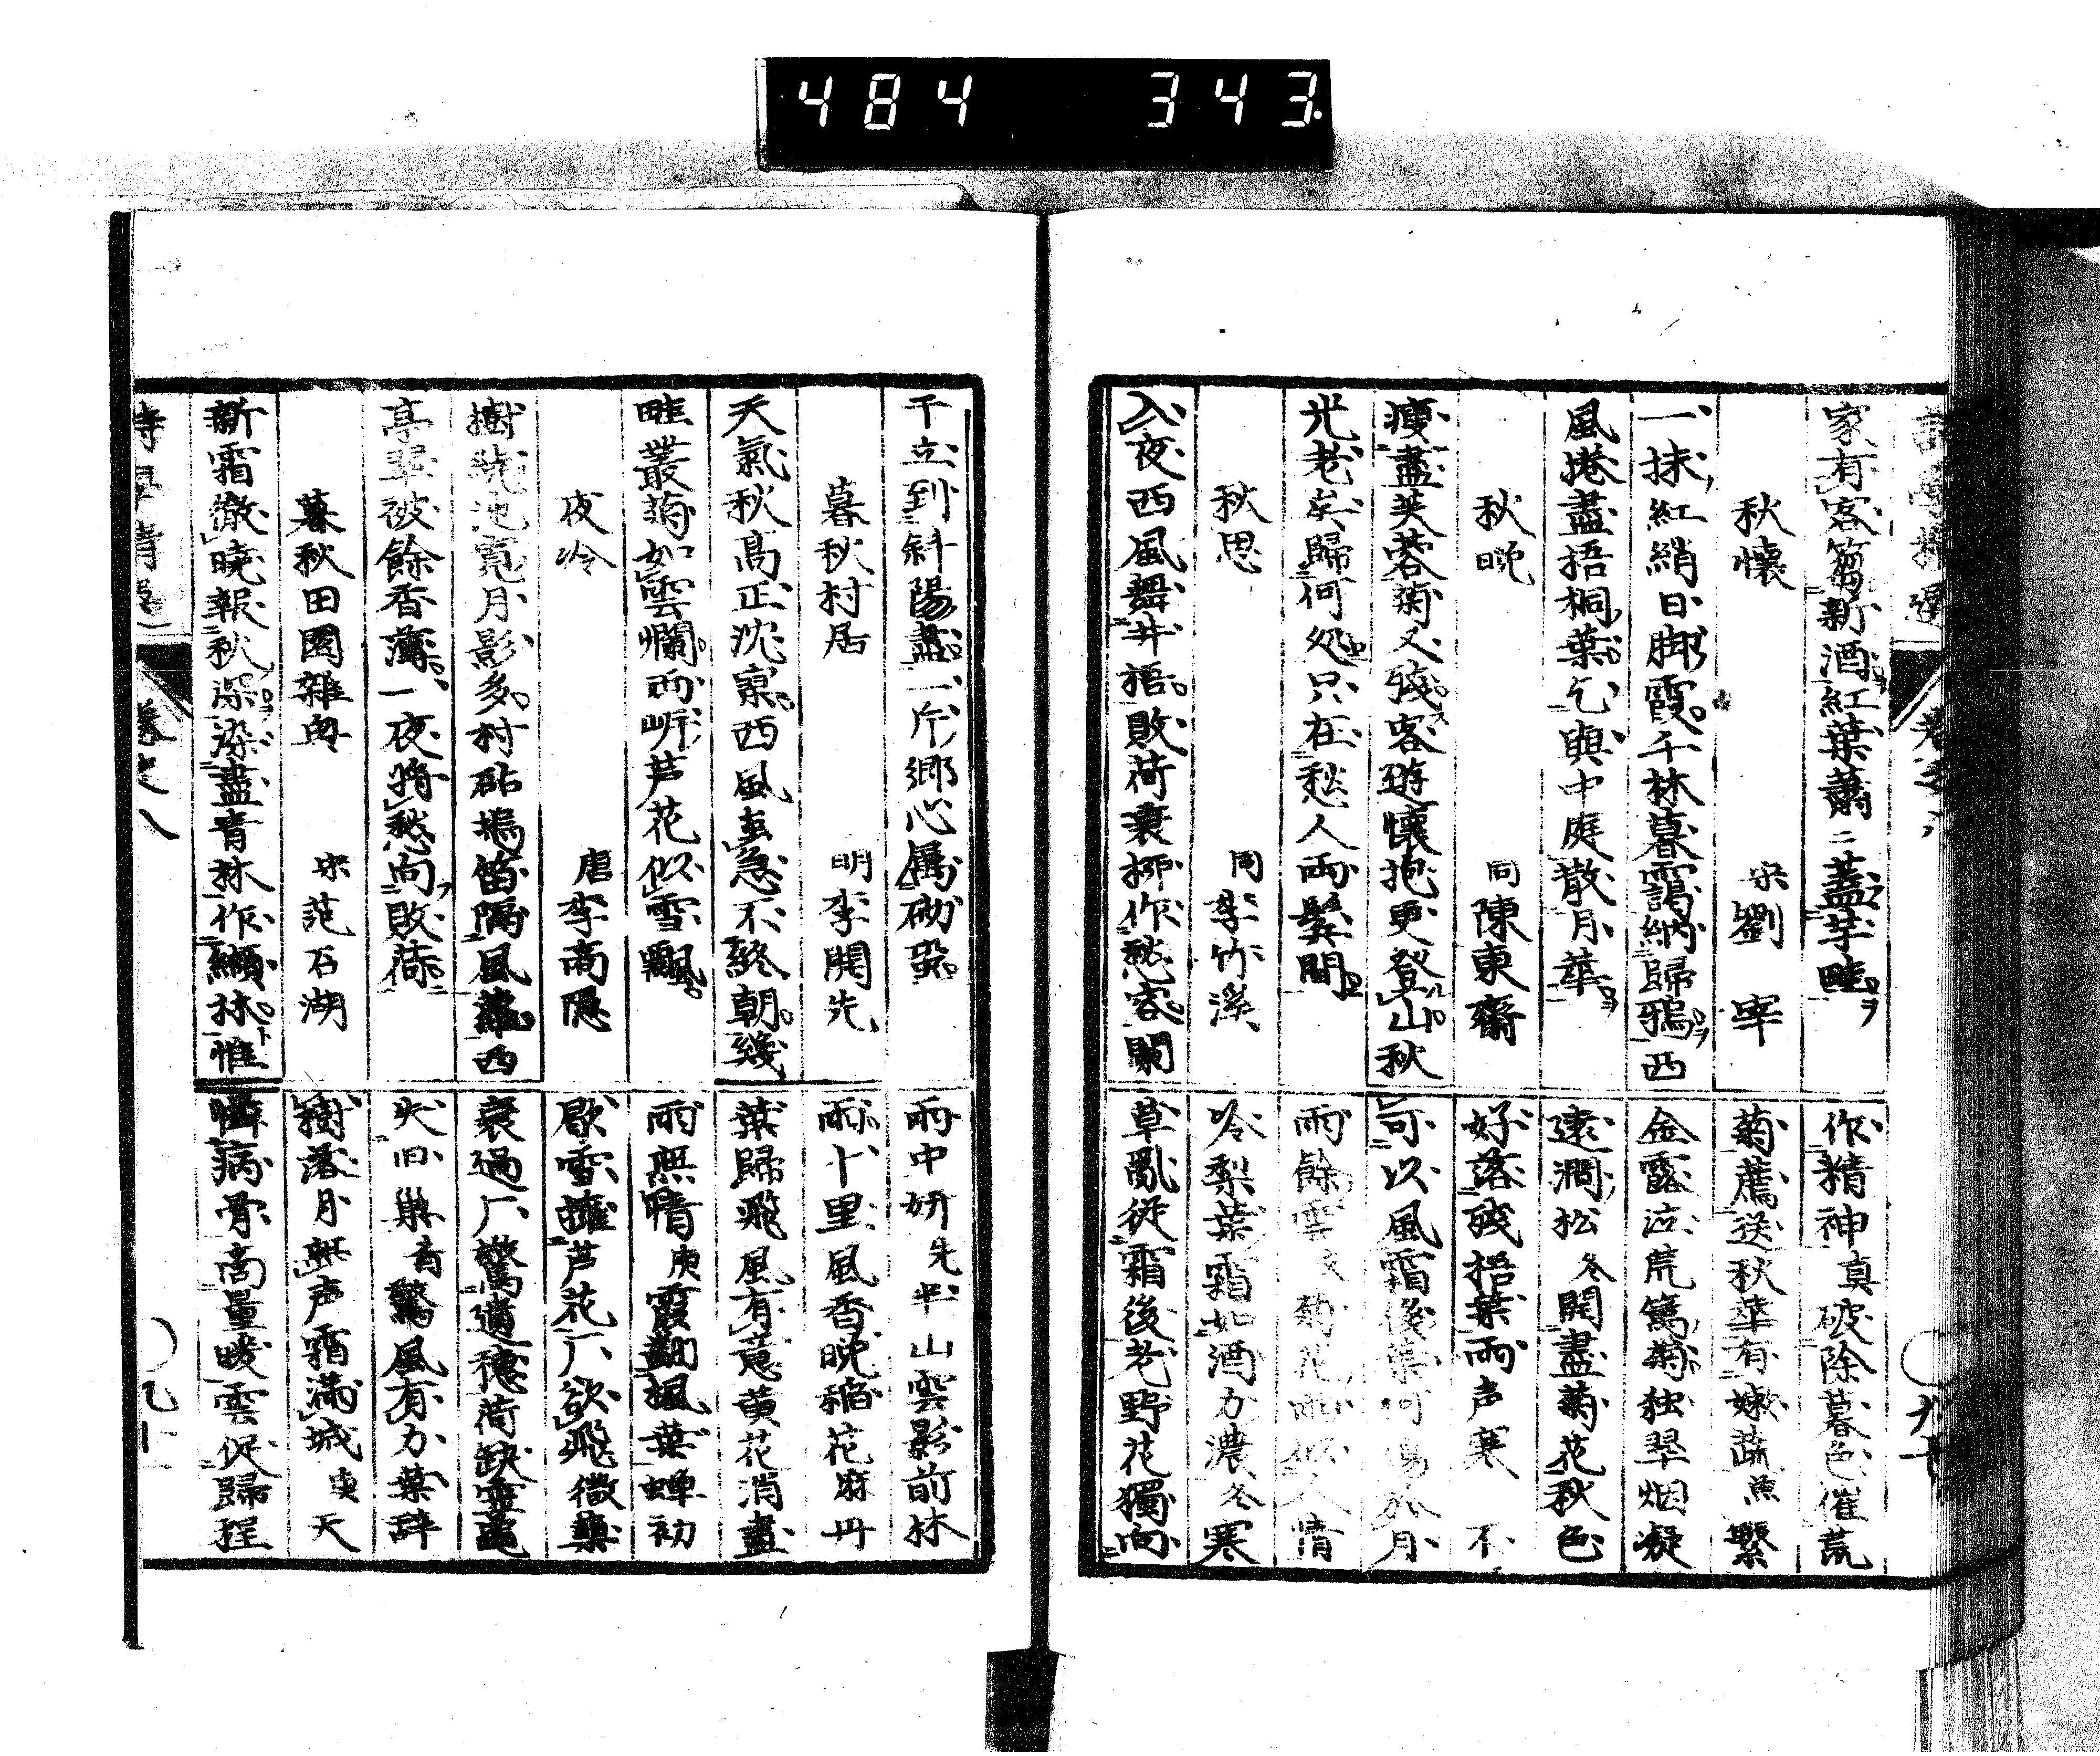 484 343.
家有客篘新酒紅葉蕭〻蓋芋畦
秋懷 宋劉宰
一抹紅綃日脚霞千林暮靄納歸鴉西
風捲盡捂桐葉乞與中庭散月華
秋晩 同陳東齋
瘦盡芙蓉菊又殘客遊懷抱更登山秋
光老矣歸何処只在愁人兩鬂間
秋思 同李竹溪
入夜西風舞井梧敗荷衰柳作愁容闌
作精神 真 破除暮色催荒
菊薦送秋華有嫩蔬 魚 繁
金露泣荒篱菊独翠烟凝
遠澗松 冬 開盡菊花秋色
好落残梧葉雨声寒 不
可以風霜後葉何傷於月
雨餘雲 菊花 人情
冷梨葉霜如酒力濃 冬 寒
草亂従霜後老野花獨向
干立到斜陽盡一片鄉心属砌蛩
暮秋村居 明李開先
天氣秋髙正沈寥西風太急不終朝幾
畦叢菊如雲爛兩岍芦花似雪飄
夜冷 唐李商隠
樹繞池寛月影多村砧塢笛隔風蘿西
亭翠被餘香薄一夜将愁向敗荷
暮秋田園雜興 宋范石湖
新霜徹曉報秋深染盡青林作纈林惟
雨中妍 先 半山雲影前林
雨十里風香晩稲花 麻 丹
葉歸飛風有意黄花消盡
雨無情 庚 霞翻楓葉蝉初
歇雪擁芦花厂欲飛 微 巣
衰過厂驚遺穂荷缺壷亀
失旧巣 肴 驚風有力葉辞
樹落月無声霜滿城 庚 天
憐病骨商量暖雲促歸程